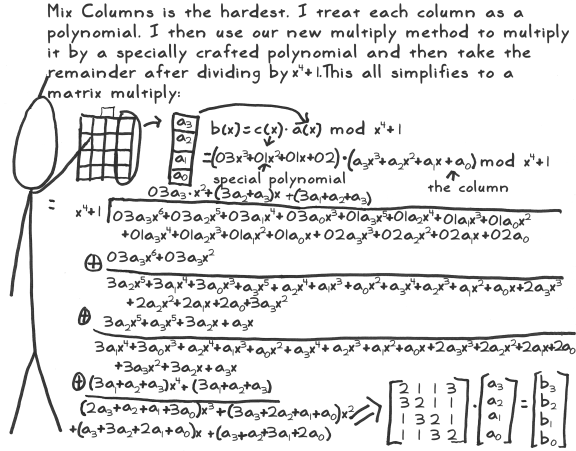 Mix Columns is the hardest. I treat each column as a
polynomial. I then use our new multiply method to multiply
it by a specially crafted polynomial and then take the
remainder after dividing by x⁴+1. This all simplifies to a
matrix multiply:
a₃
a₂
a₁
a₀
b(x)=c(x)·a(x) mod x⁴+1
=(03x³+01x²+01x+02)·(a₃x³+a₂x²+a₁x+a₀) mod x⁴+1
special polynomial
the column
03a₃·x²+(3a₂+a₃)x+(3a₁+a₂+a₃)
=
x⁴+1
03a₃x⁶+03a₂x⁵+03a₁x⁴+03a₀x³+01a₃x⁵+01a₂x⁴+01a₁x³+01a₀x²
+01a₃x⁴+01a₂x³+01a₁x²+01a₀x+02a₃x³+02a₂x²+02a₁x+02a₀
⊕ 03a₃x⁶+03a₃x²
3a₂x⁵+3a₁x⁴+3a₀x³+a₃x⁵+a₂x⁴+a₁x³+a₀x²+a₃x⁴+a₂x³+a₁x²+a₀x+2a₃x³
+2a₂x²+2a₁x+2a₀+3a₃x²
⊕ 3a₂x⁵+a₃x⁵+3a₂x+a₃x
3a₁x⁴+3a₀x³+a₂x⁴+a₁x³+a₀x²+a₃x⁴+a₂x³+a₁x²+a₀x+2a₃x³+2a₂x²+2a₁x+2a₀
+3a₃x²+3a₂x+a₃x
⊕ (3a₁+a₂+a₃)x⁴+(3a₁+a₂+a₃)
(2a₃+a₂+a₁+3a₀)x³+(3a₃+2a₂+a₁+a₀)x²
+(a₃+3a₂+2a₁+a₀)x+(a₃+a₂+3a₁+2a₀)
2 1 1 3
3 2 1 1
1 3 2 1
1 1 3 2
·
a₃
a₂
a₁
a₀
=
b₃
b₂
b₁
b₀